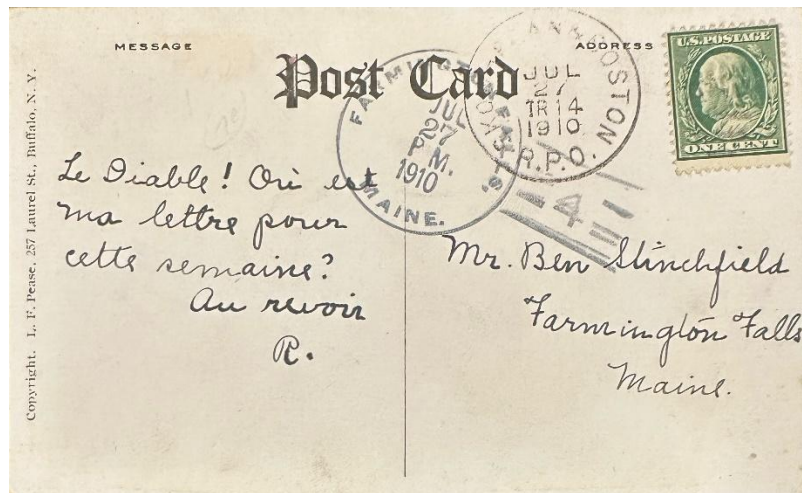 MESSAGE
Post Card
ADDRESS
Copyright. L. F. Pease, 257 Laurel St., Buffalo, N. Y.
FARMINGTON FALLS.
JUL
27
P.M.
1910
MAINE.
BOSTON
JUL
27
TR 14
1910
R.P.O.
U.S. POSTAGE
ONE CENT
4
Le Diable! Où est
ma lettre pour
cette semaine?
Au revoir
R.
Mr. Ben Stinchfield
Farmington Falls
Maine.